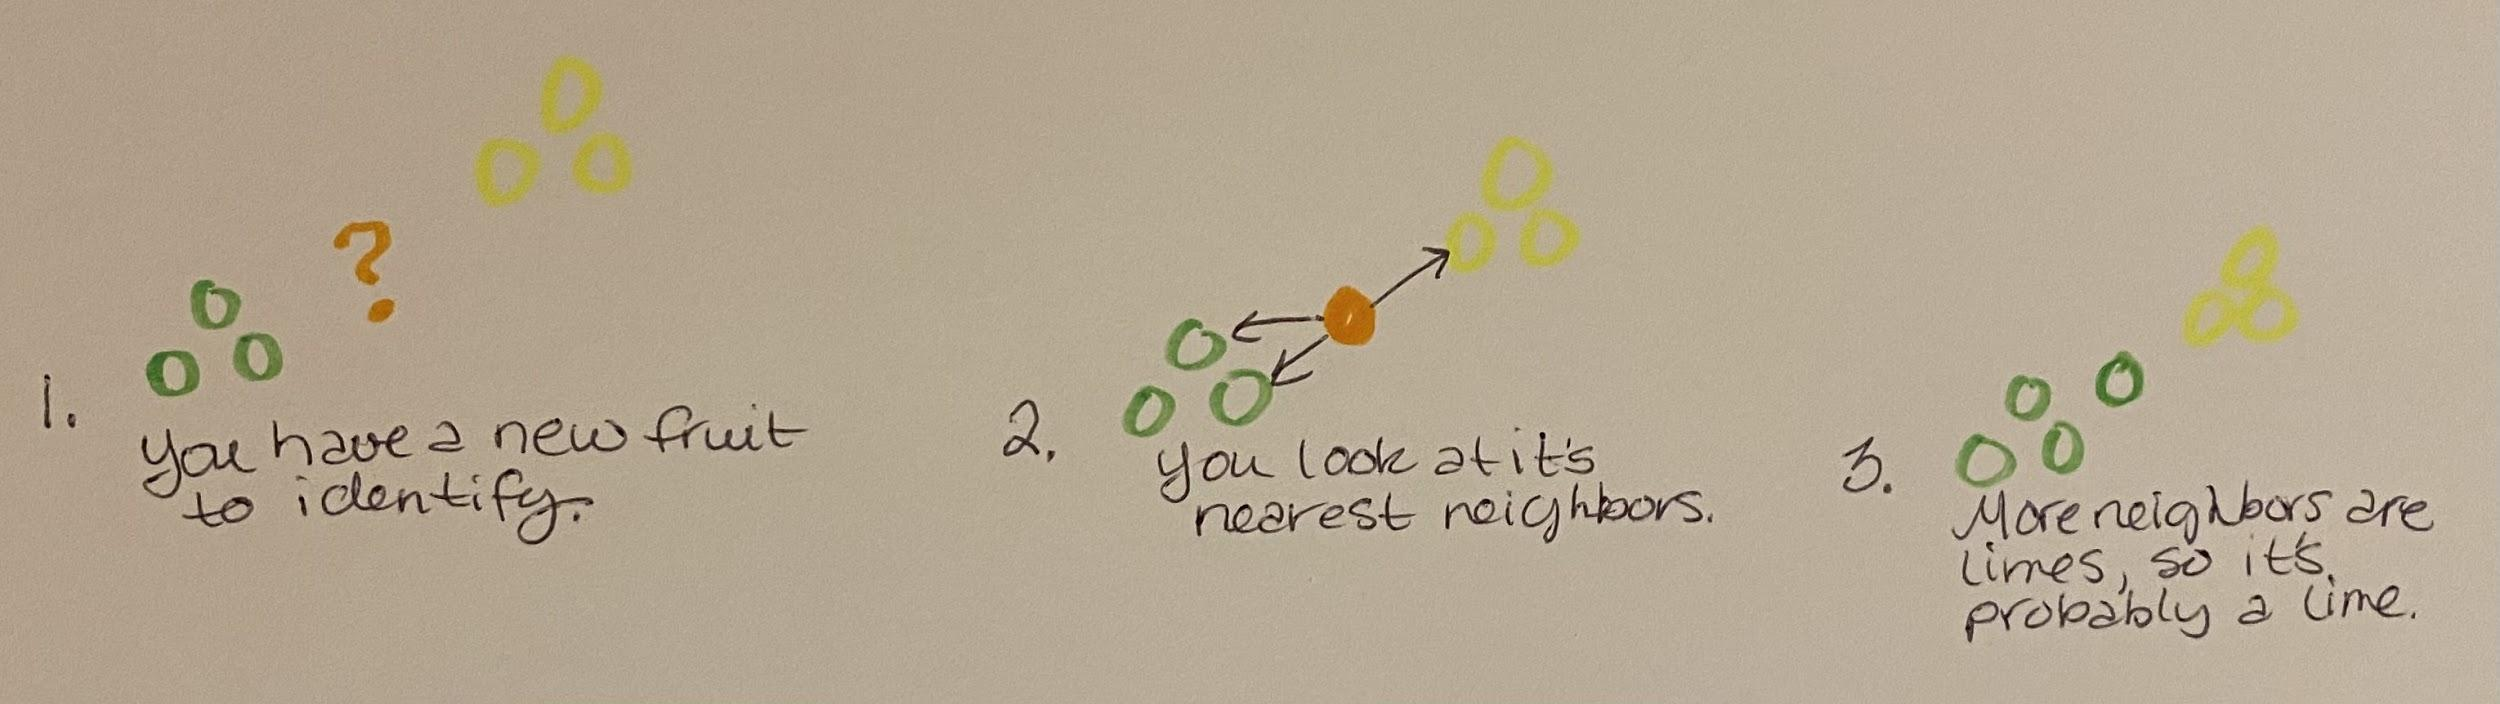 1. you have a new fruit
to identify.
2. you look at it's
nearest neighbors.
3. More neighbors are
limes, so it's
probably a lime.